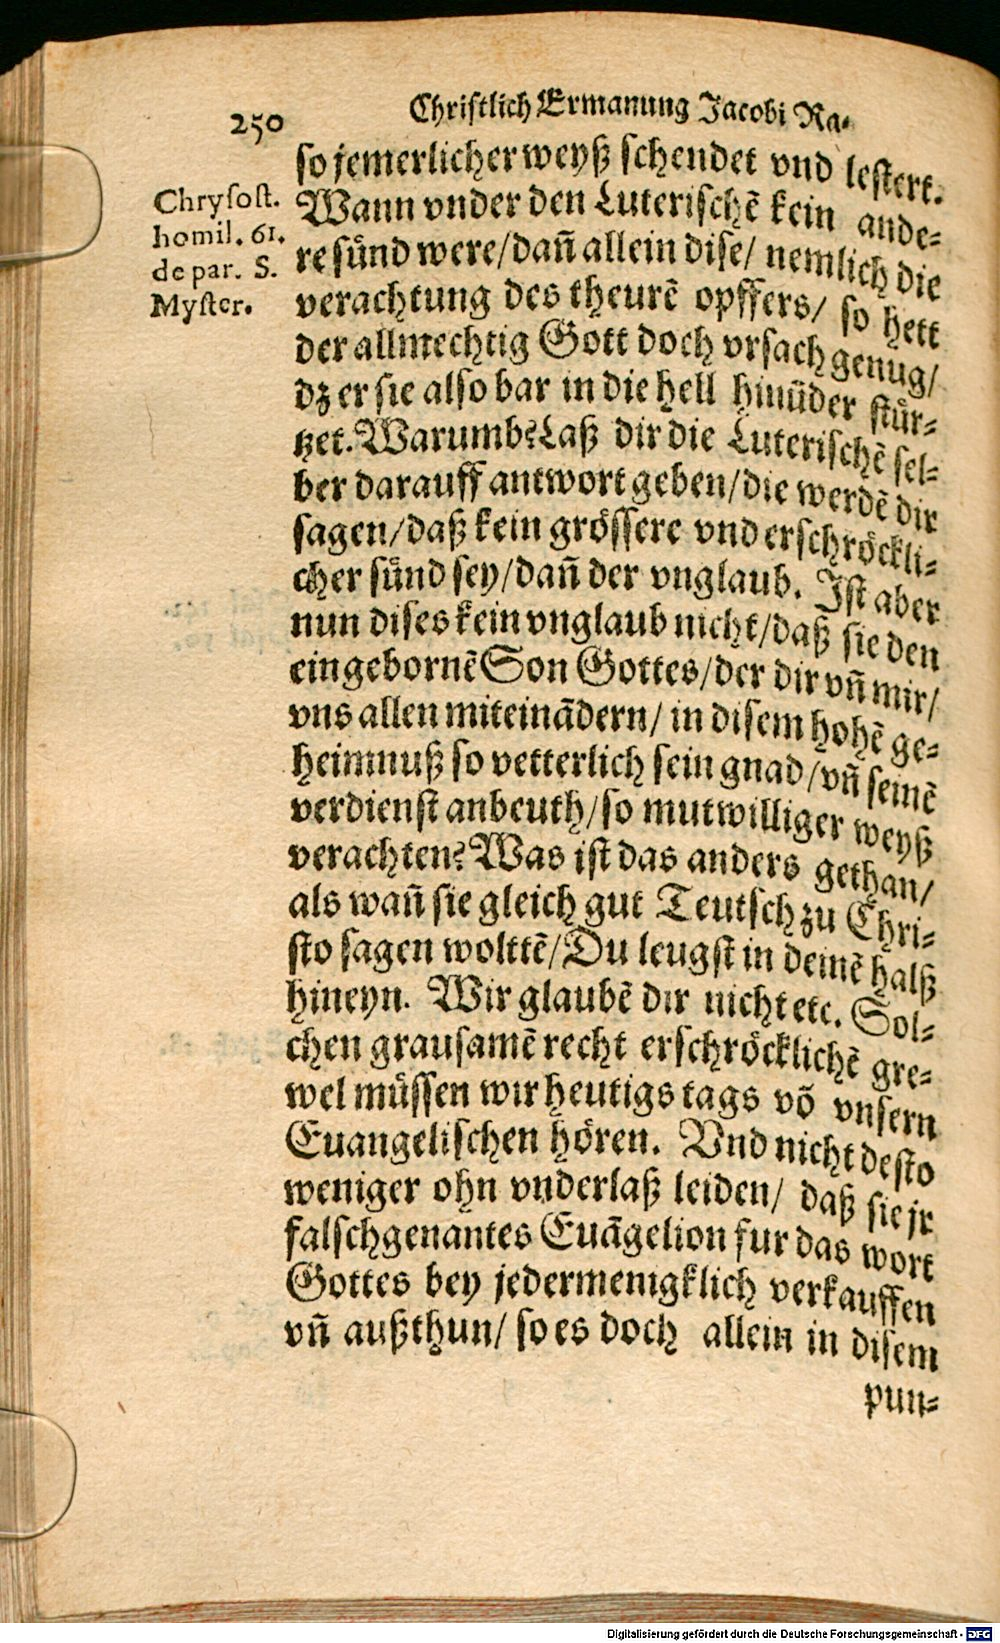 250
Christlich Ermanung Jacobi Ra-
Chrysost.
homil. 61.
de par. S.
Myster.
so jemerlicher weyß schendet vnd lestert.
Wann vnder den Luterischē kein ande-
re sünd were/dañ allein dise/ nemlich die
verachtung des theurē opffers/ so hett
der allmechtig Gott doch vrsach genug/
dz er sie also bar in die hell hinūder stür-
tzet. Warumb? Laß dir die Luterischē sel-
ber darauff antwort geben/die werdē dir
sagen/daß kein grössere vnd erschröckli-
cher sünd sey/dañ der vnglaub. Ist aber
nun dises kein vnglaub nicht/daß sie den
eingebornē Son Gottes/der dir vñ mir/
vns allen miteinādern/ in disem hohē ge-
heimnuß so vetterlich sein gnad/vñ seinē
verdienst anbeuth/so mutwilliger weyß
verachten? Was ist das anders gethan/
als wañ sie gleich gut Teutsch zu Chri-
sto sagen wolttē/Du leugst in deinē halß
hineyn. Wir glaubē dir nicht etc. Sol-
chen grausamē recht erschröcklichē gre-
wel müssen wir heutigs tags vō vnsern
Euangelischen hören. Vnd nicht desto
weniger ohn vnderlaß leiden/ daß sie jr
falschgenantes Euāgelion fur das wort
Gottes bey jedermenigklich verkauffen
vñ außthun/ so es doch allein in disem
pun-
Digitalisierung gefördert durch die Deutsche Forschungsgemeinschaft - DFG